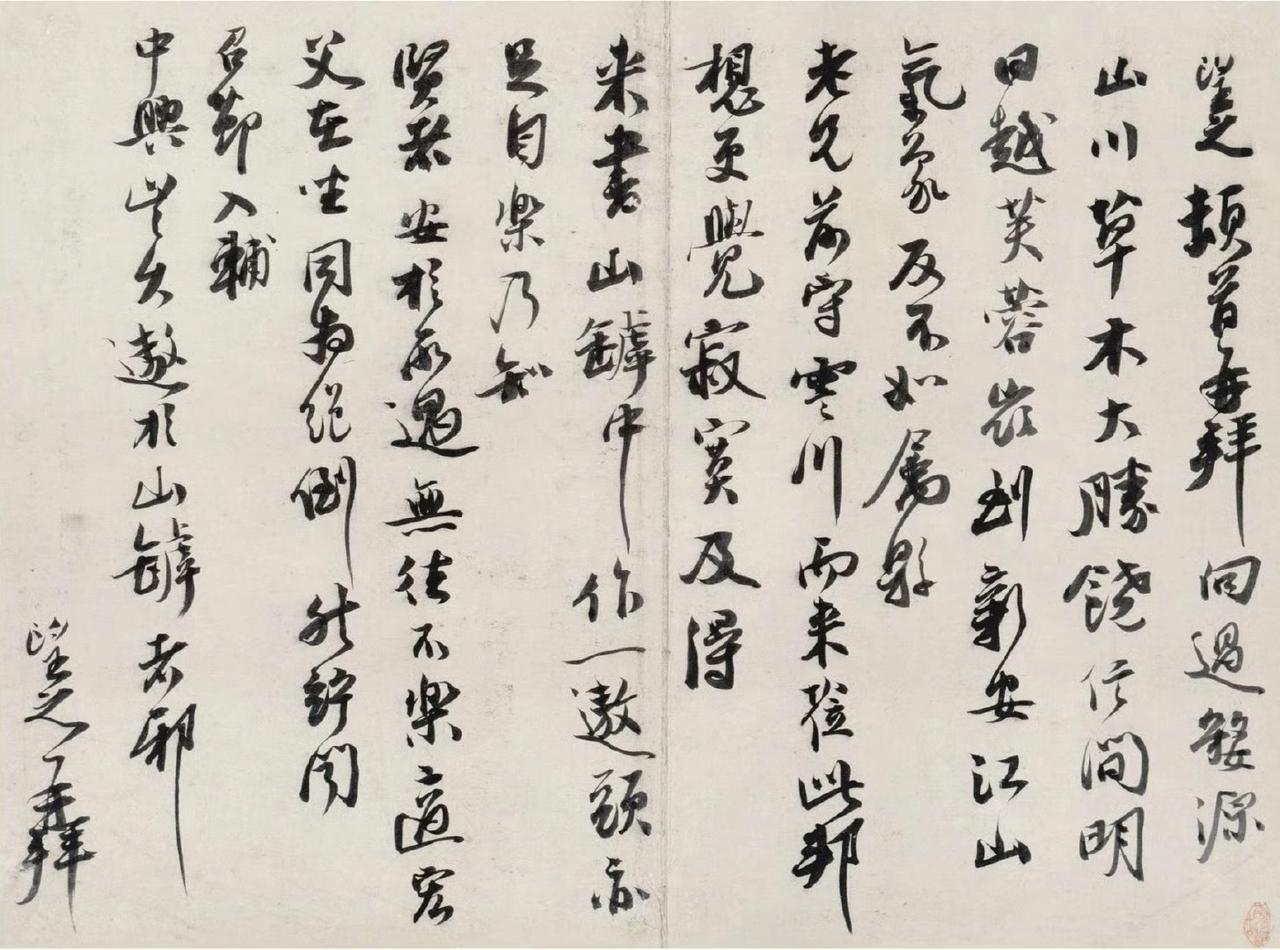 望之頓首再拜向過婺源
山川草木大勝饒信間明
日越芙蓉嶺到新安江山
氣象反不如屬縣
老兄前守雪川而来蒞此邦
想更覺寂寞及得
来書山罅中作一遨頭亦
足自樂乃知
賢者安於所遇無往不樂適宏
父在坐同為絕倒然許閎
召節入輔
中興豈久遨於山罅者邪
望之再拜